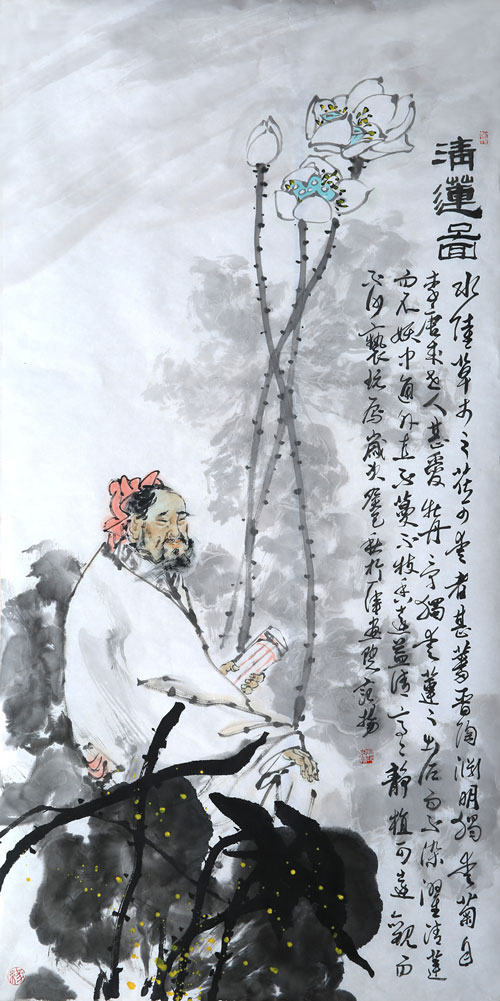 清蓮圖
水陸草木之花可愛者甚蕃晉陶淵明獨愛菊自
李唐來世人甚愛牡丹予獨愛蓮之出淤而不染濯清蓮
而不妖中通外直不蔓不枝香遠益清亭亭靜植可遠觀而
不可褻玩焉歲次秋於